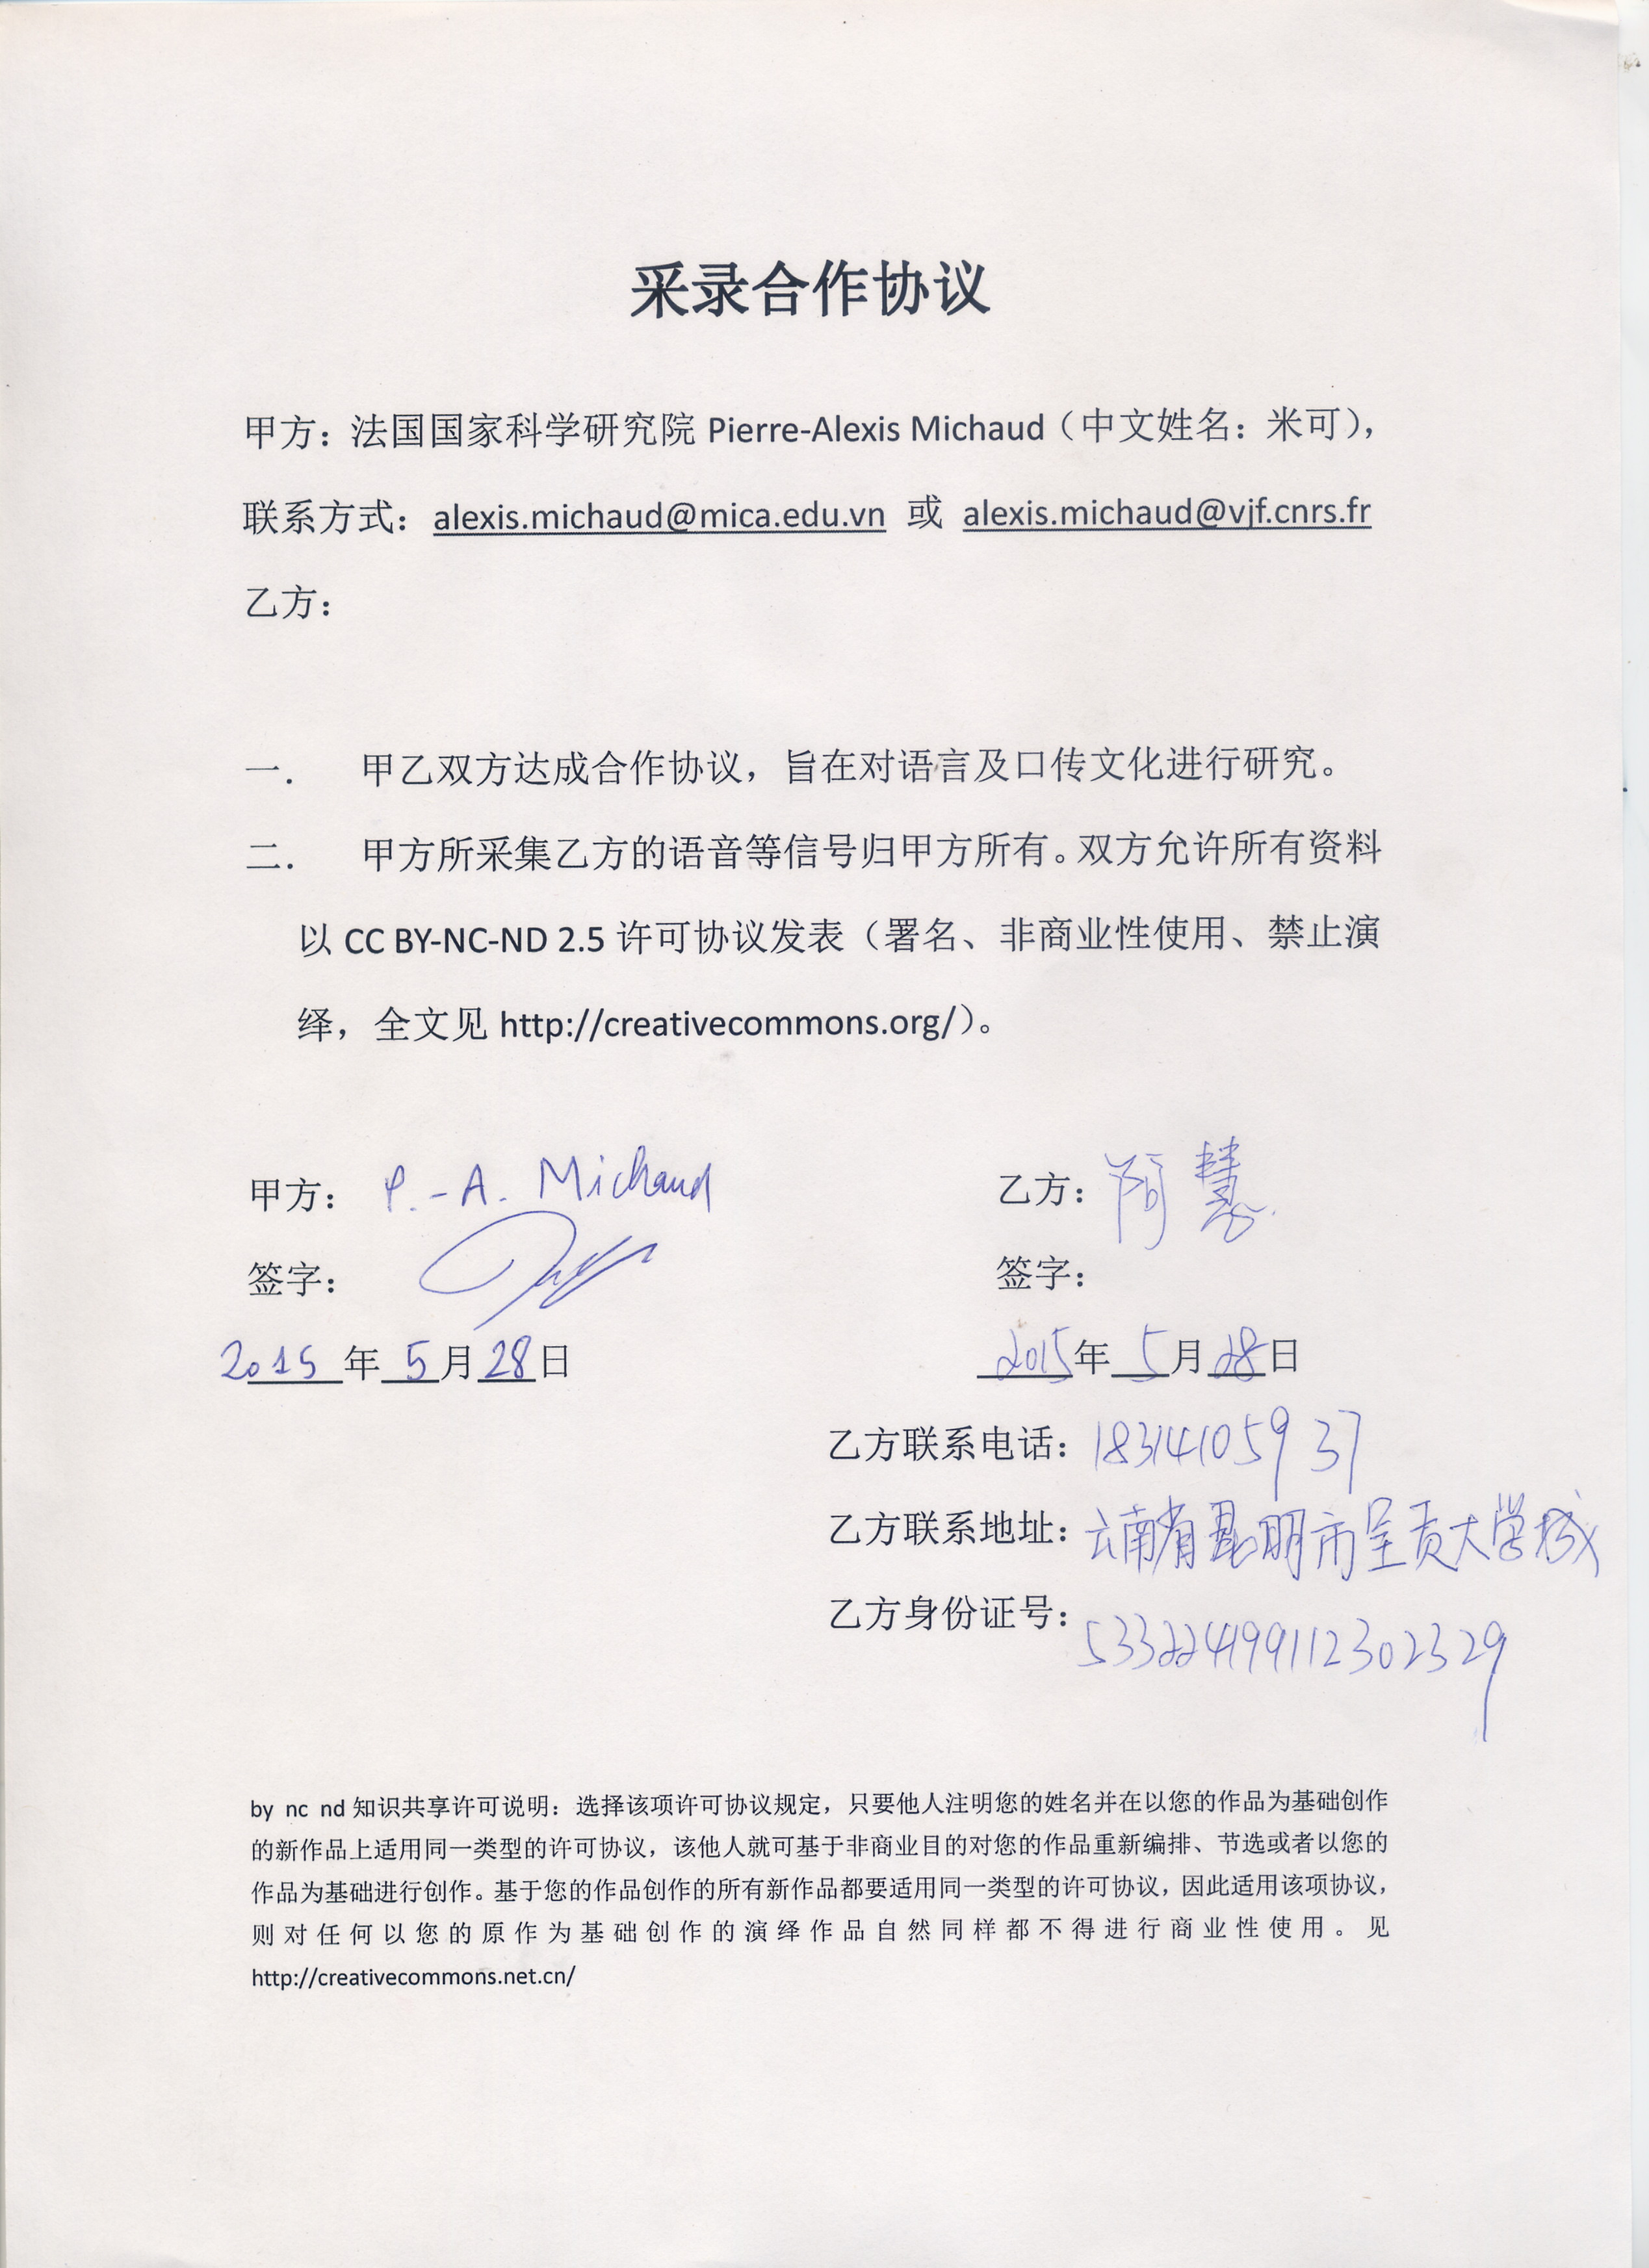 采录合作协议
甲方：法国国家科学研究院 Pierre-Alexis Michaud（中文姓名：米可），
联系方式：alexis.michaud@mica.edu.vn 或 alexis.michaud@vjf.cnrs.fr
乙方：
一． 甲乙双方达成合作协议，旨在对语言及口传文化进行研究。
二． 甲方所采集乙方的语音等信号归甲方所有。双方允许所有资料
以 CC BY-NC-ND 2.5 许可协议发表（署名、非商业性使用、禁止演
绎，全文见 http://creativecommons.org/）。
甲方： P.-A. Michaud 乙方：阿慧
签字： 签字：
2015 年 5 月 28 日 2015 年 5 月 28 日
乙方联系电话：18314105937
乙方联系地址：云南省昆明市呈贡大学城
乙方身份证号：533224199112302329
by nc nd 知识共享许可说明：选择该项许可协议规定，只要他人注明您的姓名并在以您的作品为基础创作
的新作品上适用同一类型的许可协议，该他人就可基于非商业目的对您的作品重新编排、节选或者以您的
作品为基础进行创作。基于您的作品创作的所有新作品都要适用同一类型的许可协议，因此适用该项协议，
则对任何以您的原作为基础创作的演绎作品自然同样都不得进行商业性使用。见
http://creativecommons.net.cn/